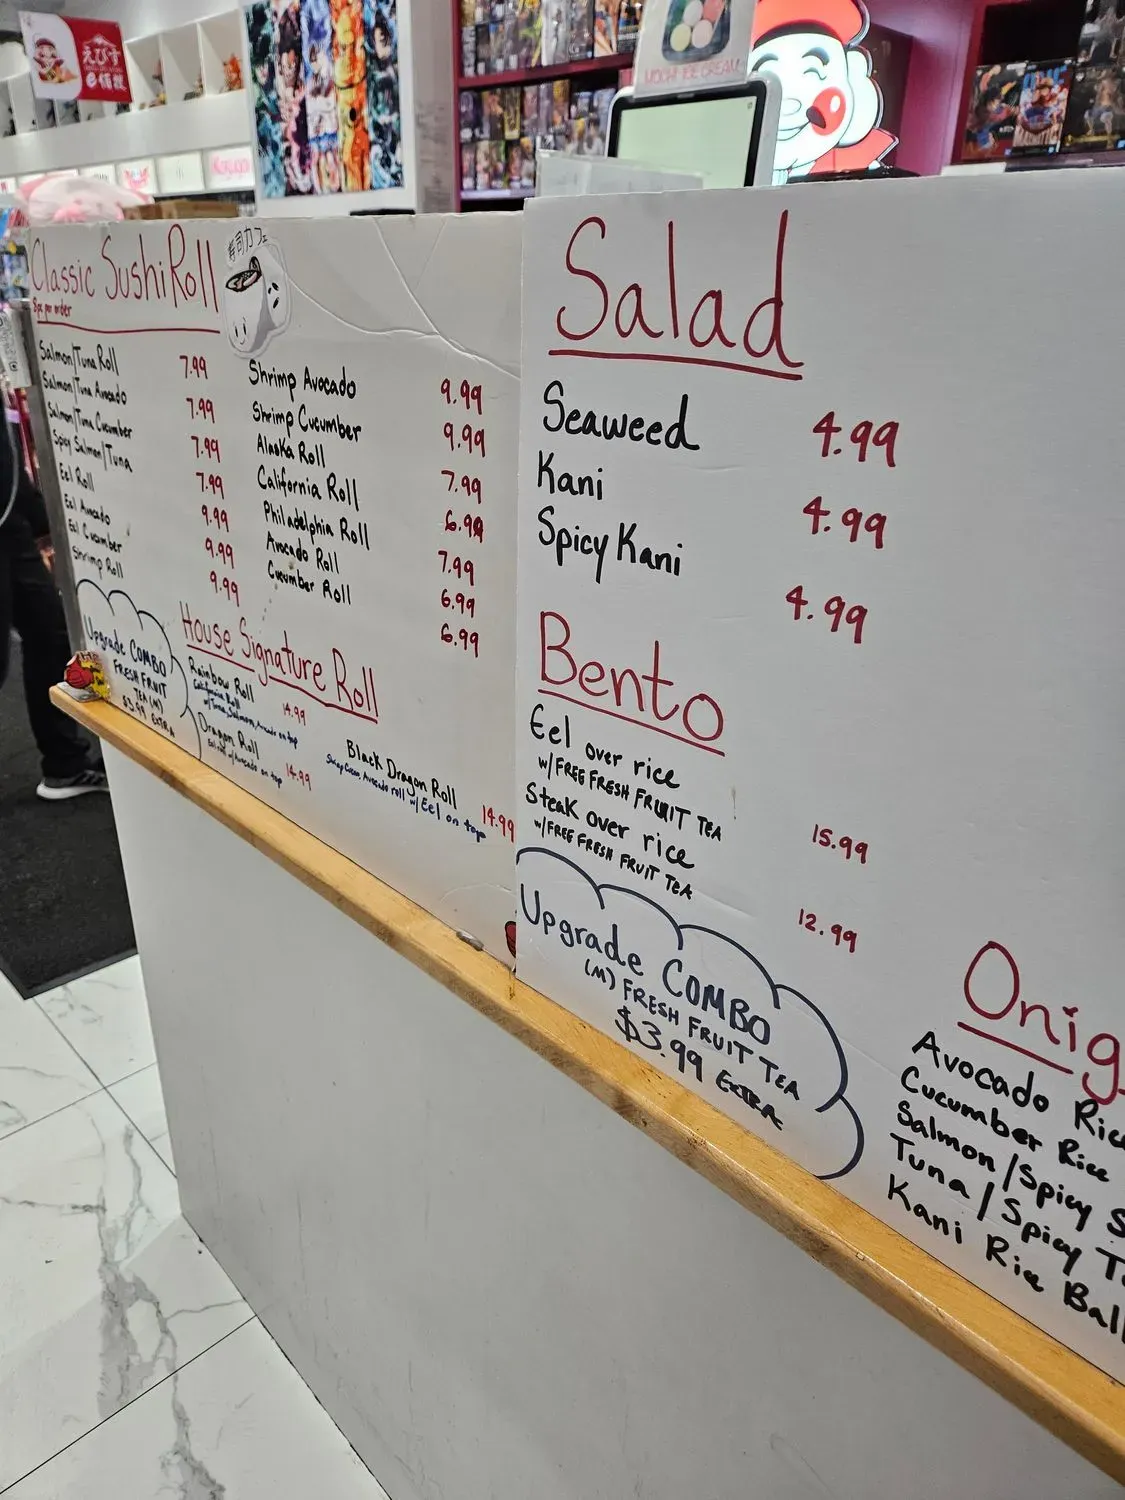 えびす
e佰貨
MOCHI ICE CREAM
Classic Sushi Roll
8pc per order
寿司カフェ
Salmon/Tuna Roll 7.99
Salmon/Tuna Avocado 7.99
Salmon/Tuna Cucumber 7.99
Spicy Salmon/Tuna 7.99
Eel Roll 9.99
Eel Avocado 9.99
Eel Cucumber 9.99
Shrimp Roll
Shrimp Avocado 9.99
Shrimp Cucumber 9.99
Alaska Roll 7.99
California Roll 6.99
Philadelphia Roll 7.99
Avocado Roll 6.99
Cucumber Roll 6.99
Upgrade COMBO
FRESH FRUIT
TEA (M)
$3.99 EXTRA
House Signature Roll
Rainbow Roll 14.99
California Roll
w/Tuna, Salmon, Avocado on top
Dragon Roll 14.99
Eel roll w/Avocado on top
Black Dragon Roll 14.99
Avocado roll w/ Eel on top
Salad
Seaweed 4.99
Kani 4.99
Spicy Kani 4.99
Bento
Eel over rice
w/FREE FRESH FRUIT TEA 15.99
Steak over rice
w/FREE FRESH FRUIT TEA 12.99
Upgrade COMBO
(M) FRESH FRUIT TEA
$3.99 EXTRA
Onig
Avocado Ric
Cucumber Rice
Salmon/Spicy S
Tuna/Spicy T
Kani Rice Ball